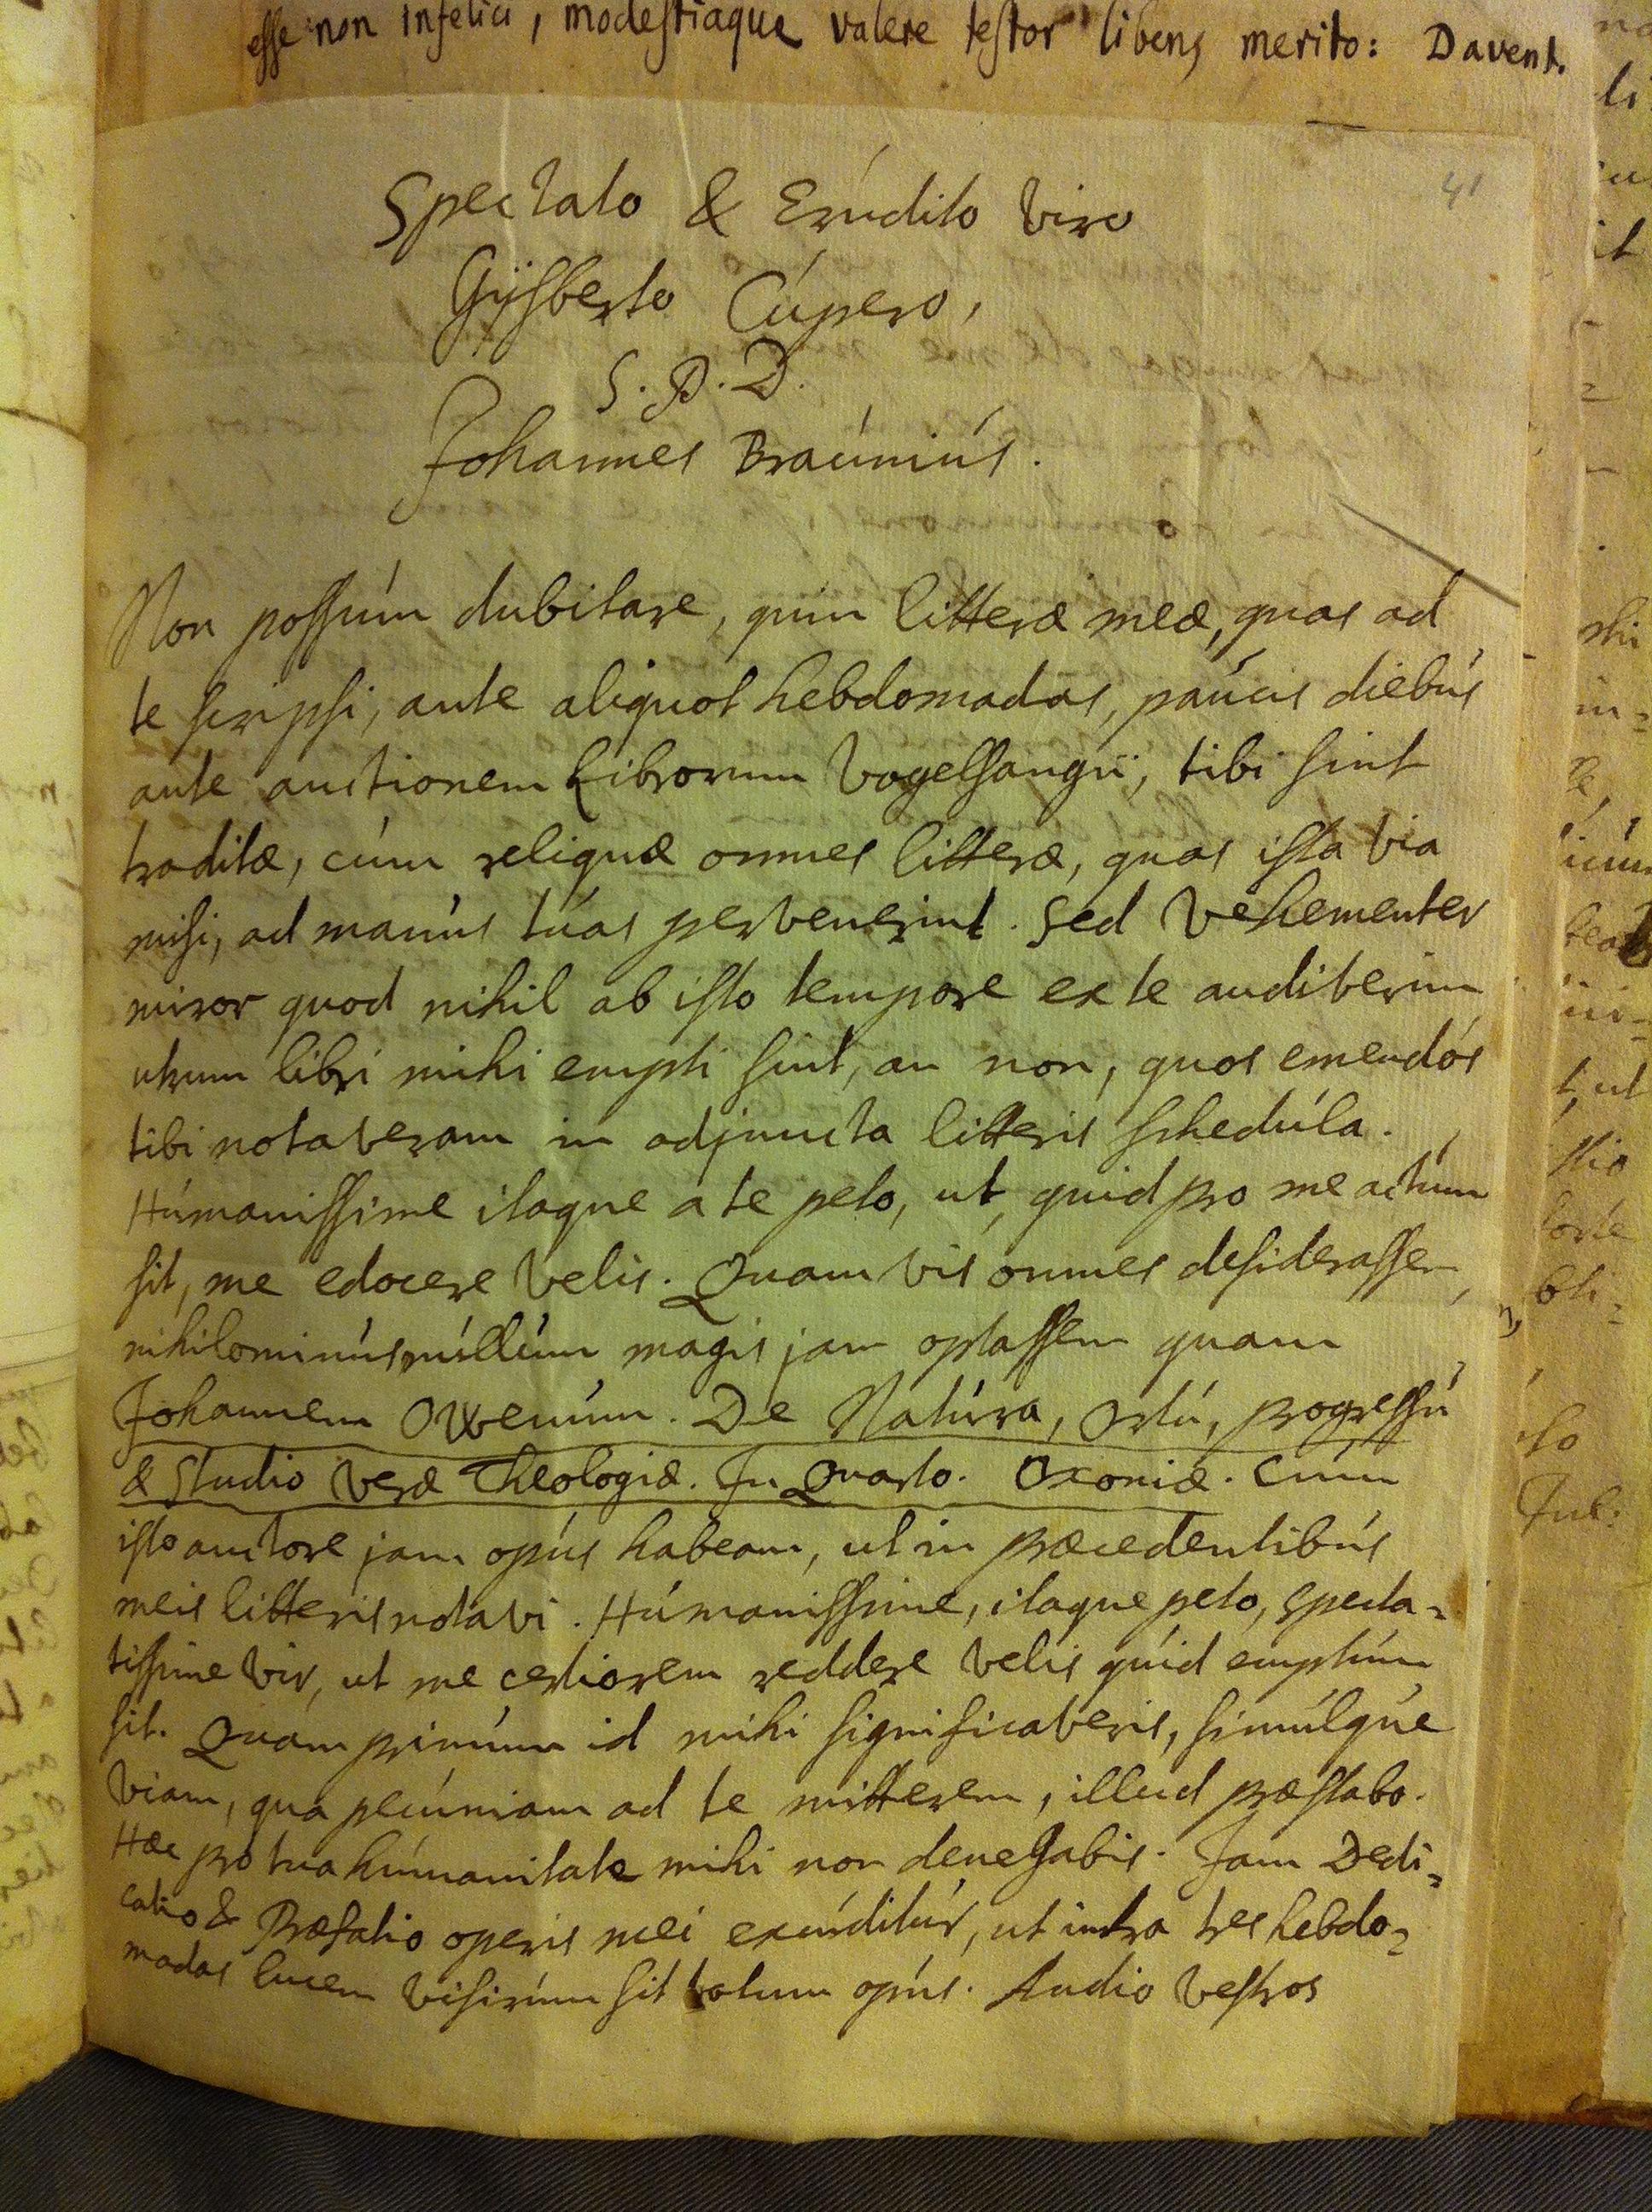 esse non infelici, modestiaque valere testor libens merito: Davent.
41
Spectato & Erúdito Viro
Gÿsberto Cúpero,
S. P. D.
Johannes Braúniús.
Non possúm dubitare, quin litteræ meæ, quas ad
te scripsi, ante aliquot hebdomadas, paúcis diebús
ante auctionem Librorum Vogelsangii, tibi sint
traditæ, cúm reliquæ omnes litteræ, quas ista via
misi, ad manús túas pervenerint. Sed Vehementer
miror quod nihil ab isto tempore ex te audiverim
utrum libri mihi empti sint, an non, quos emendós
tibi notaveram in adjuncta litteris schedúla.
Húmanissime itaque a te peto, ut, quid pro me actúm
sit, me edocere velis. Quamvis omnes desiderassem,
nihilominús núllúm magis jam optassem quam
Johannem Owenúm. De Natúra, Ortú, progressú
& studio Veræ Theologiæ. In Quarto. Oxoniæ. Cúm
isto auctore jam opús habeam, ut in præcedentibús
meis litteris notavi. Húmanissime, itaque peto, specta-
tissime Vir, ut me certiorem reddere velis qúid emptúm
sit. Quam primúm id mihi significaveris, simúlqúe
viam, qua pecúniam ad te mitterem, illud præstabo.
Hæc pro tua húmanitate mihi non denegabis. Jam Dedi-
catio & Præfatio operis mei excúditúr, ut intra tres hebdo-
madas lucem visúrúm sit totum opús. Audio Vestros